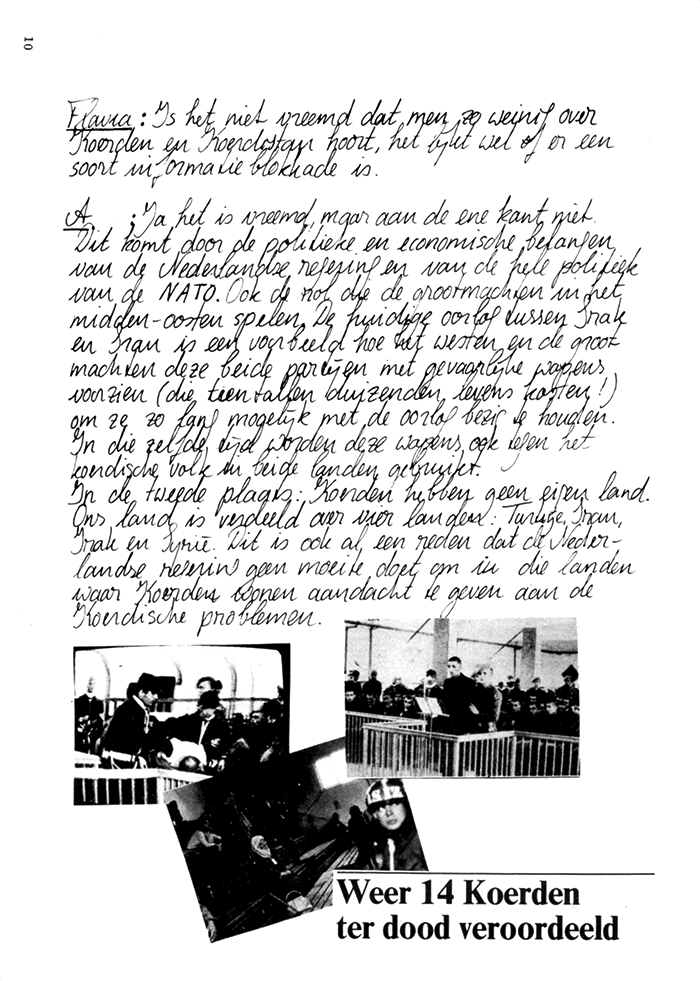 10
Flavia: Is het niet vreemd dat men zo weinig over
Koerden en Koerdistan hoort, het lijkt wel of er een
soort informatieblokkade is.
A. : Ja, het is vreemd, maar aan de ene kant niet.
Dit komt door de politieke en economische belangen
van de Nederlandse regering en van de hele politiek
van de NATO. Ook de rol die de grootmachten in het
midden-oosten spelen. De huidige oorlog tussen Irak
en Iran is een voorbeeld hoe het westen en de groot
machten deze beide partijen met gevaarlijke wapens
voorzien (die tientallen duizenden levens kosten!)
om ze zo lang mogelijk met de oorlog bezig te houden.
In die zelfde tijd worden deze wapens ook tegen het
koerdische volk in beide landen gebruikt.
In de tweede plaats: Koerden hebben geen eigen land.
Ons land is verdeeld over vier landen: Turkije, Iran,
Irak en Syrië. Dit is ook al een reden dat de Neder-
landse regering geen moeite doet om in die landen
waar Koerden wonen aandacht te geven aan de
Koerdische problemen.
Weer 14 Koerden
ter dood veroordeeld